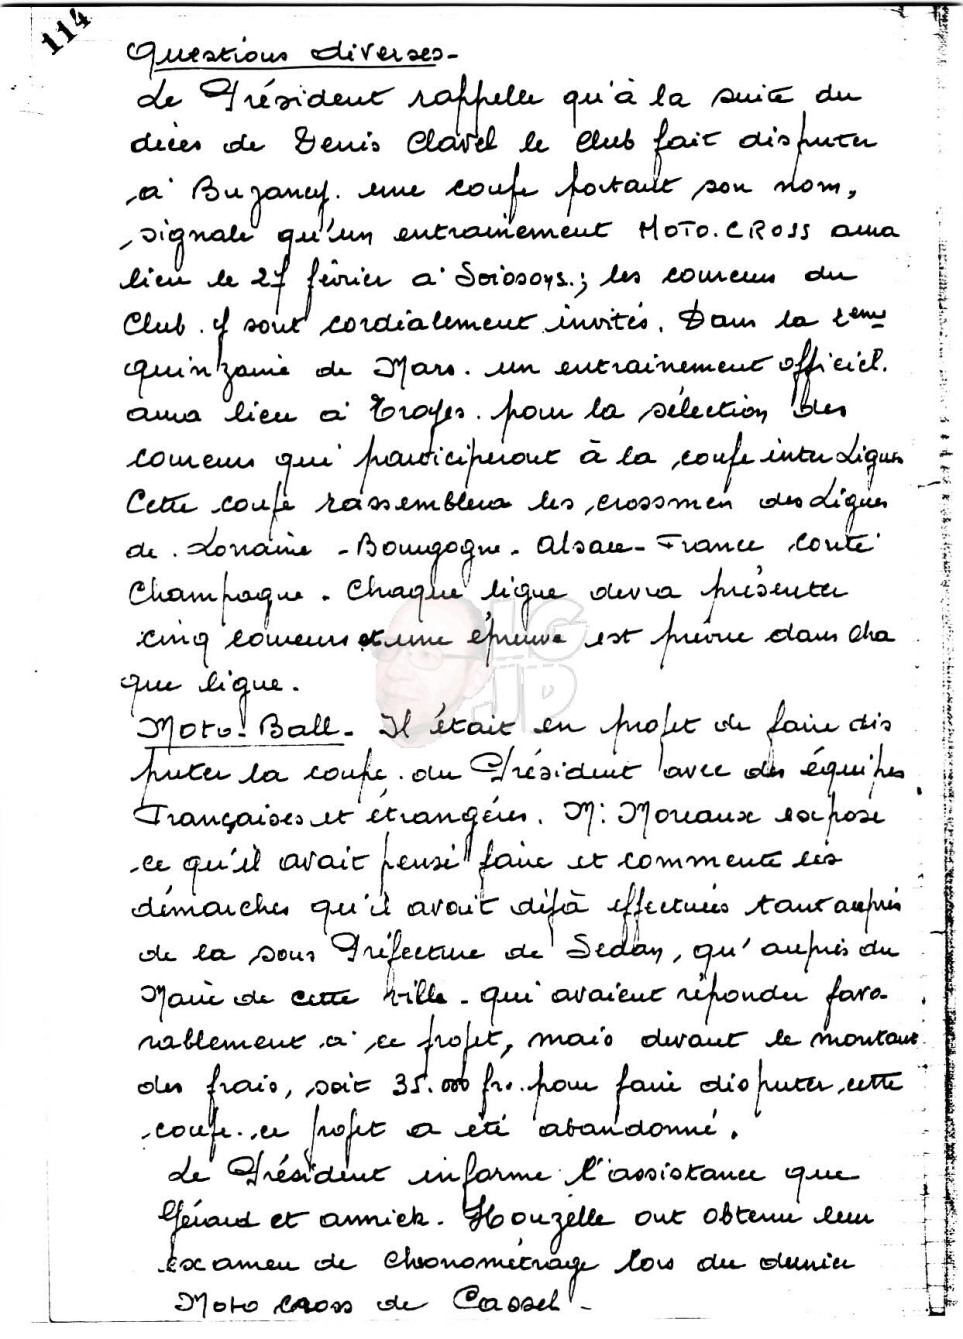 114
Questions diverses -
Le Président rappelle qu'à la suite du
décès de Denis Clavel le Club fait disputer
à Buzancy. une coupe portant son nom,
signale qu'un entrainement MOTO.CROSS aura
lieu le 27 février à Soissons.; les coureurs du
Club. y sont cordialement invités. Dans la 2eme
quinzaine de Mars. un entrainement officiel.
aura lieu à Troyes. pour la sélection des
coureurs qui participeront à la coupe inter Ligues
Cette coupe rassemblera les crossmen des Ligues
de. Lorraine - Bourgogne - Alsace - France Conté
Champagne. Chaque ligue devra présenter
cinq coureurs et une épreuve est prévue dans cha
que ligue.
Moto-Ball - Il était en projet de faire dis
puter la coupe. du Président avec des équipes
Françaises et étrangères. M: Moreaux expose
ce qu'il avait pensé faire et commente les
démarches qu'il avait déjà effectuées tant auprès
de la sous Préfecture de Sedan, qu'auprès du
Maire de cette ville - qui avaient répondu favo-
rablement à ce projet, mais devant le montant
des frais, soit 35.000 frs. pour faire disputer cette
coupe. ce projet a été abandonné.
Le Président informe l'assistance que
Gérard et Annick. Houzelle ont obtenu leur
examen de chronométrage lors du dernier
Moto cross de Cassel -